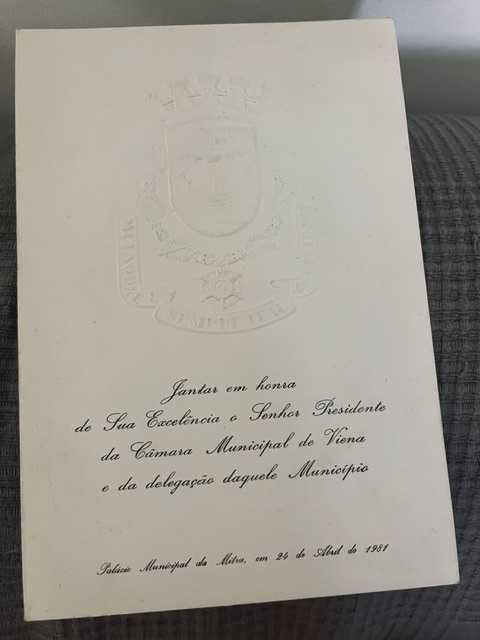 Jantar em honra
de Sua Excelência o Senhor Presidente
da Câmara Municipal de Viena
e da delegação daquele Município
Palácio Municipal da Mitra, em 24 de Abril de 1981